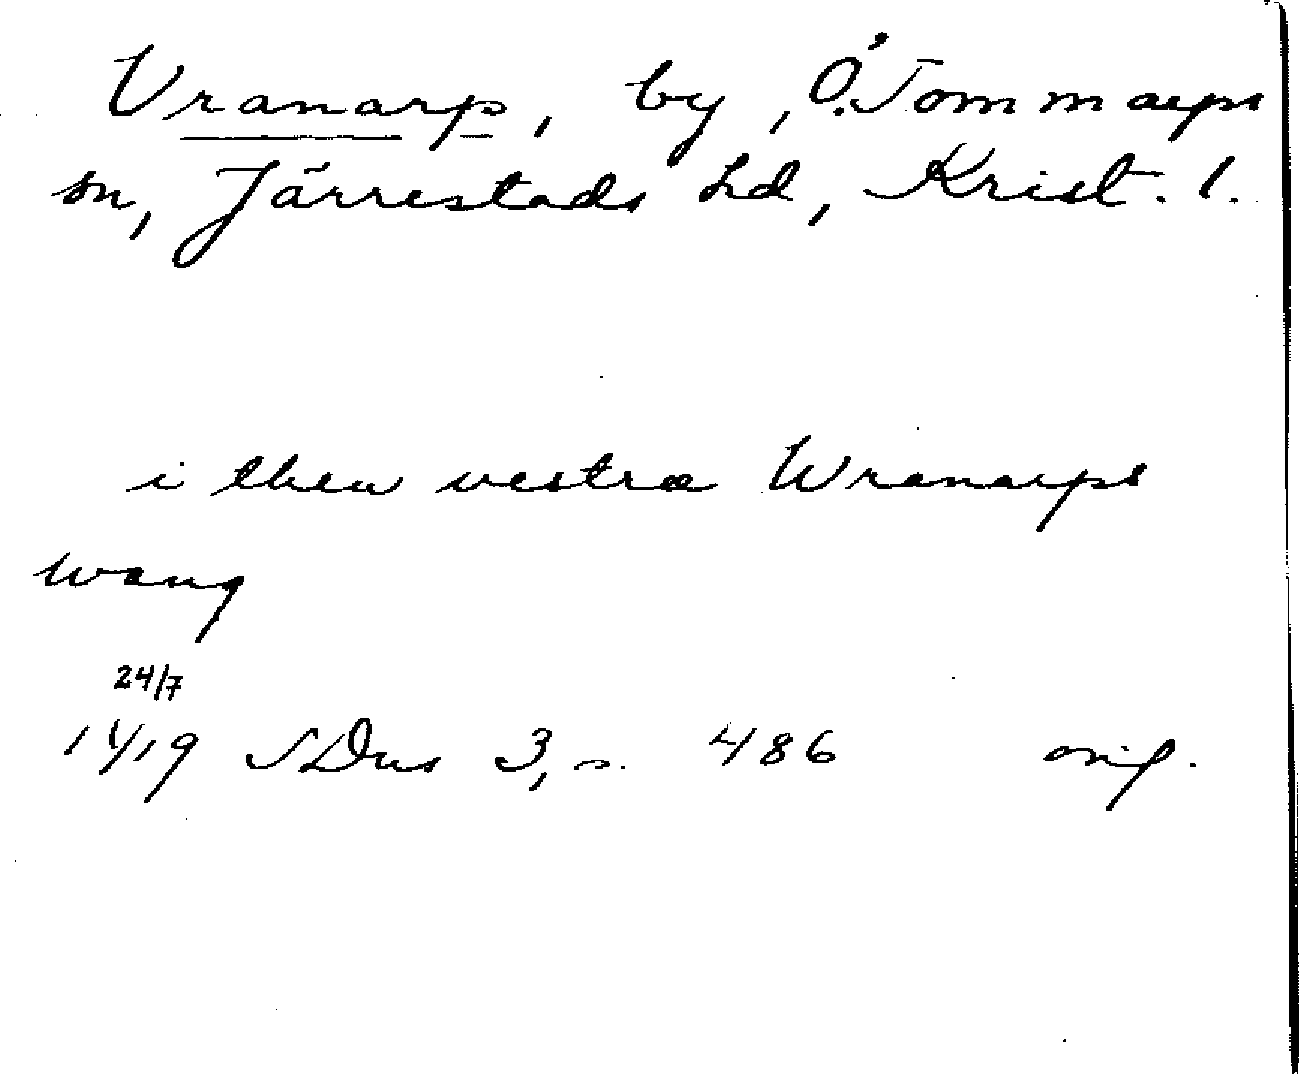 Vranarp, by, Ö. Tommarps
sn, Järrestads hd, Krist. l.
i then vestræ Wranarps
wang
24/7
1419 SDns 3, s. 486 orig.